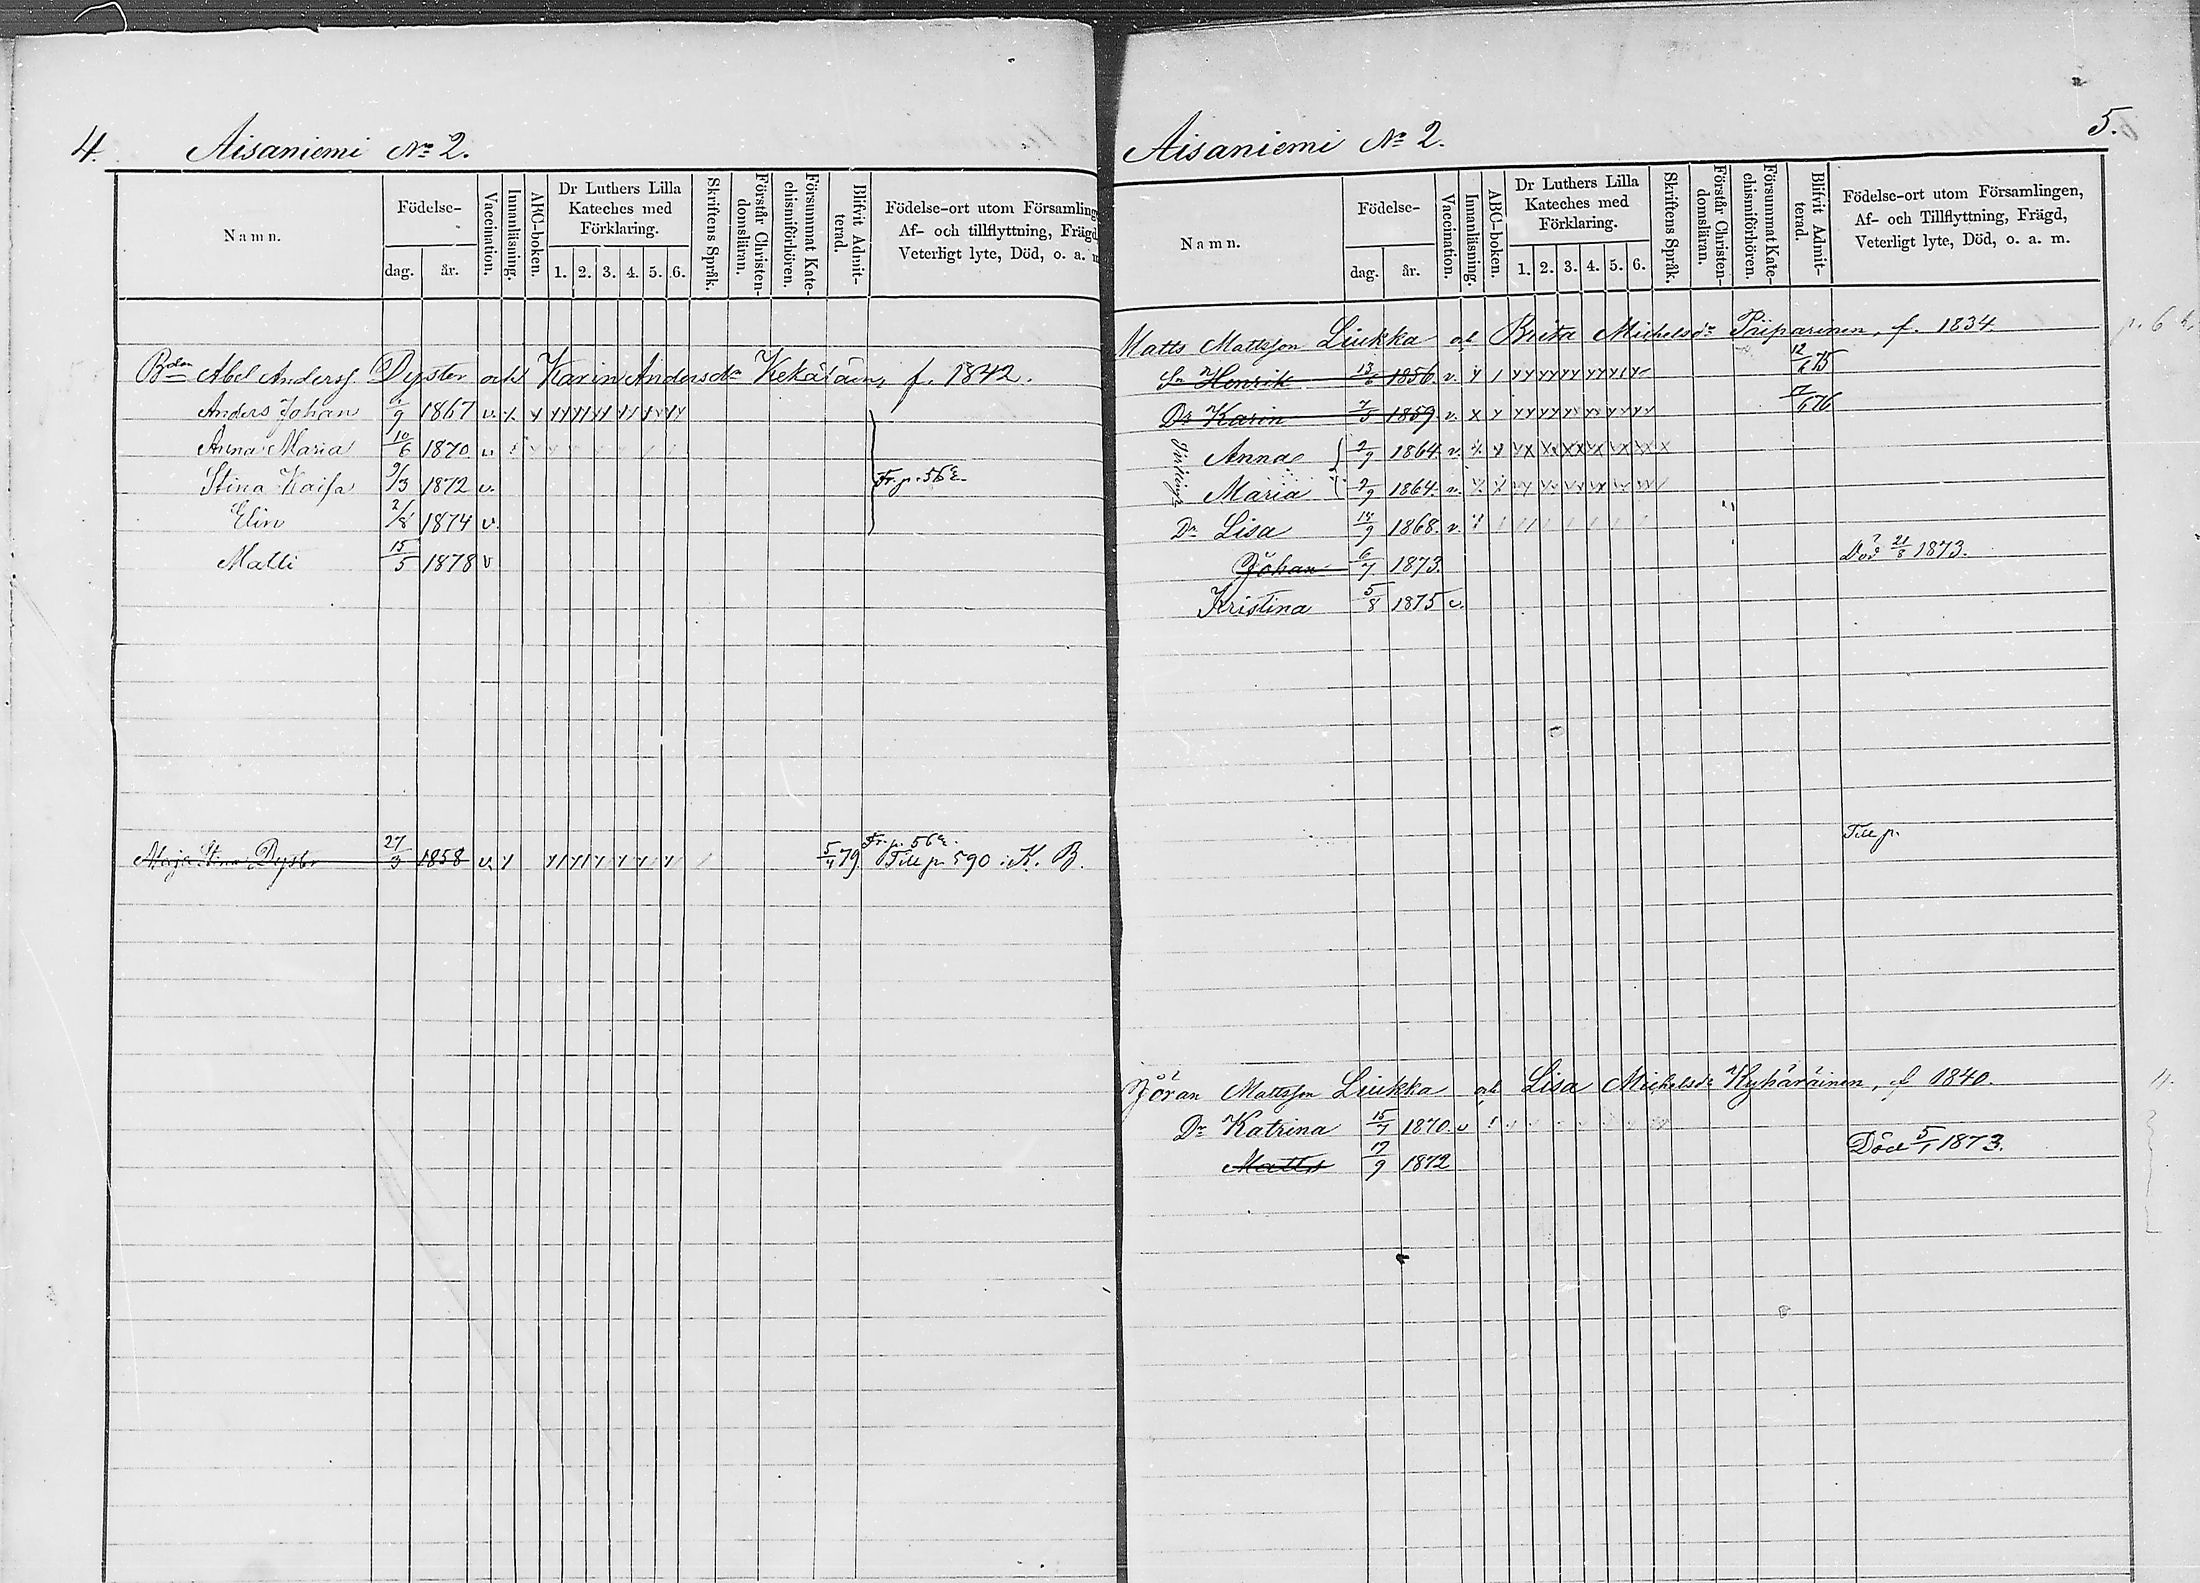 4. Aisaniemi No 2.
Namn.
Födelse-
dag. år.
Vaccination.
Innanläsning.
ABC-boken.
Dr Luthers Lilla
Kateches med
Förklaring.
1. 2. 3. 4. 5. 6.
Skriftens Språk.
Förstår Christen-
domsläran.
Försummat Kate-
chismiförhören.
Blifvit Admit-
terad.
Födelse-ort utom Församling
Af- och tillflyttning, Frägd
Veterligt lyte, Död, o. a. m
Bden Abel Anderss. Dyster och Karin Andersdr Kekäläinen f. 1842.
Anders Johan /9 1867 v.
Anna Maria 10/6 1870 v
Stina Kaisa 9/3 1872 v. Fr. p. 56
Elin 2/8 1874 v.
Matti 15/5 1878 v
Fr. p. 56
Maja Stina Dyster 27/3 1858 v 79 Till p 590 i K. B.
5.
Aisaniemi No 2.
Namn.
Födelse-
dag. år.
Vaccination.
Innanläsning.
ABC-boken.
Dr Luthers Lilla
Kateches med
Förklaring.
1. 2. 3. 4. 5. 6.
Skriftens Språk.
Förstår Christen-
domsläran.
Försummat Kate-
chismiförhören.
Blifvit Admit-
terad.
Födelse-ort utom Församlingen,
Af- och Tillflyttning, Frägd,
Veterligt lyte, Död, o. a. m.
Matts Mattsson Liukka och Brita Michelsdr Piiparinen, f. 1834
Sn Henrik 13/6 1856. v. 12/6 75
Dr Karin 1859. v. 76
Anna 2/9 1864. v.
Maria 2/9 1864. v.
Dr Lisa 18/9 1868. v.
Johan 6/7 1873. Död 21/8 1873.
Kristina 5/8 1875 v.
Till p.
Jöran Mattsson Liukka och Lisa Michelsdr Kyhäräinen, f 1840.
Dr Katrina 15/7 1870. v
Matts 17/9 1872 Död 5/1 1873.